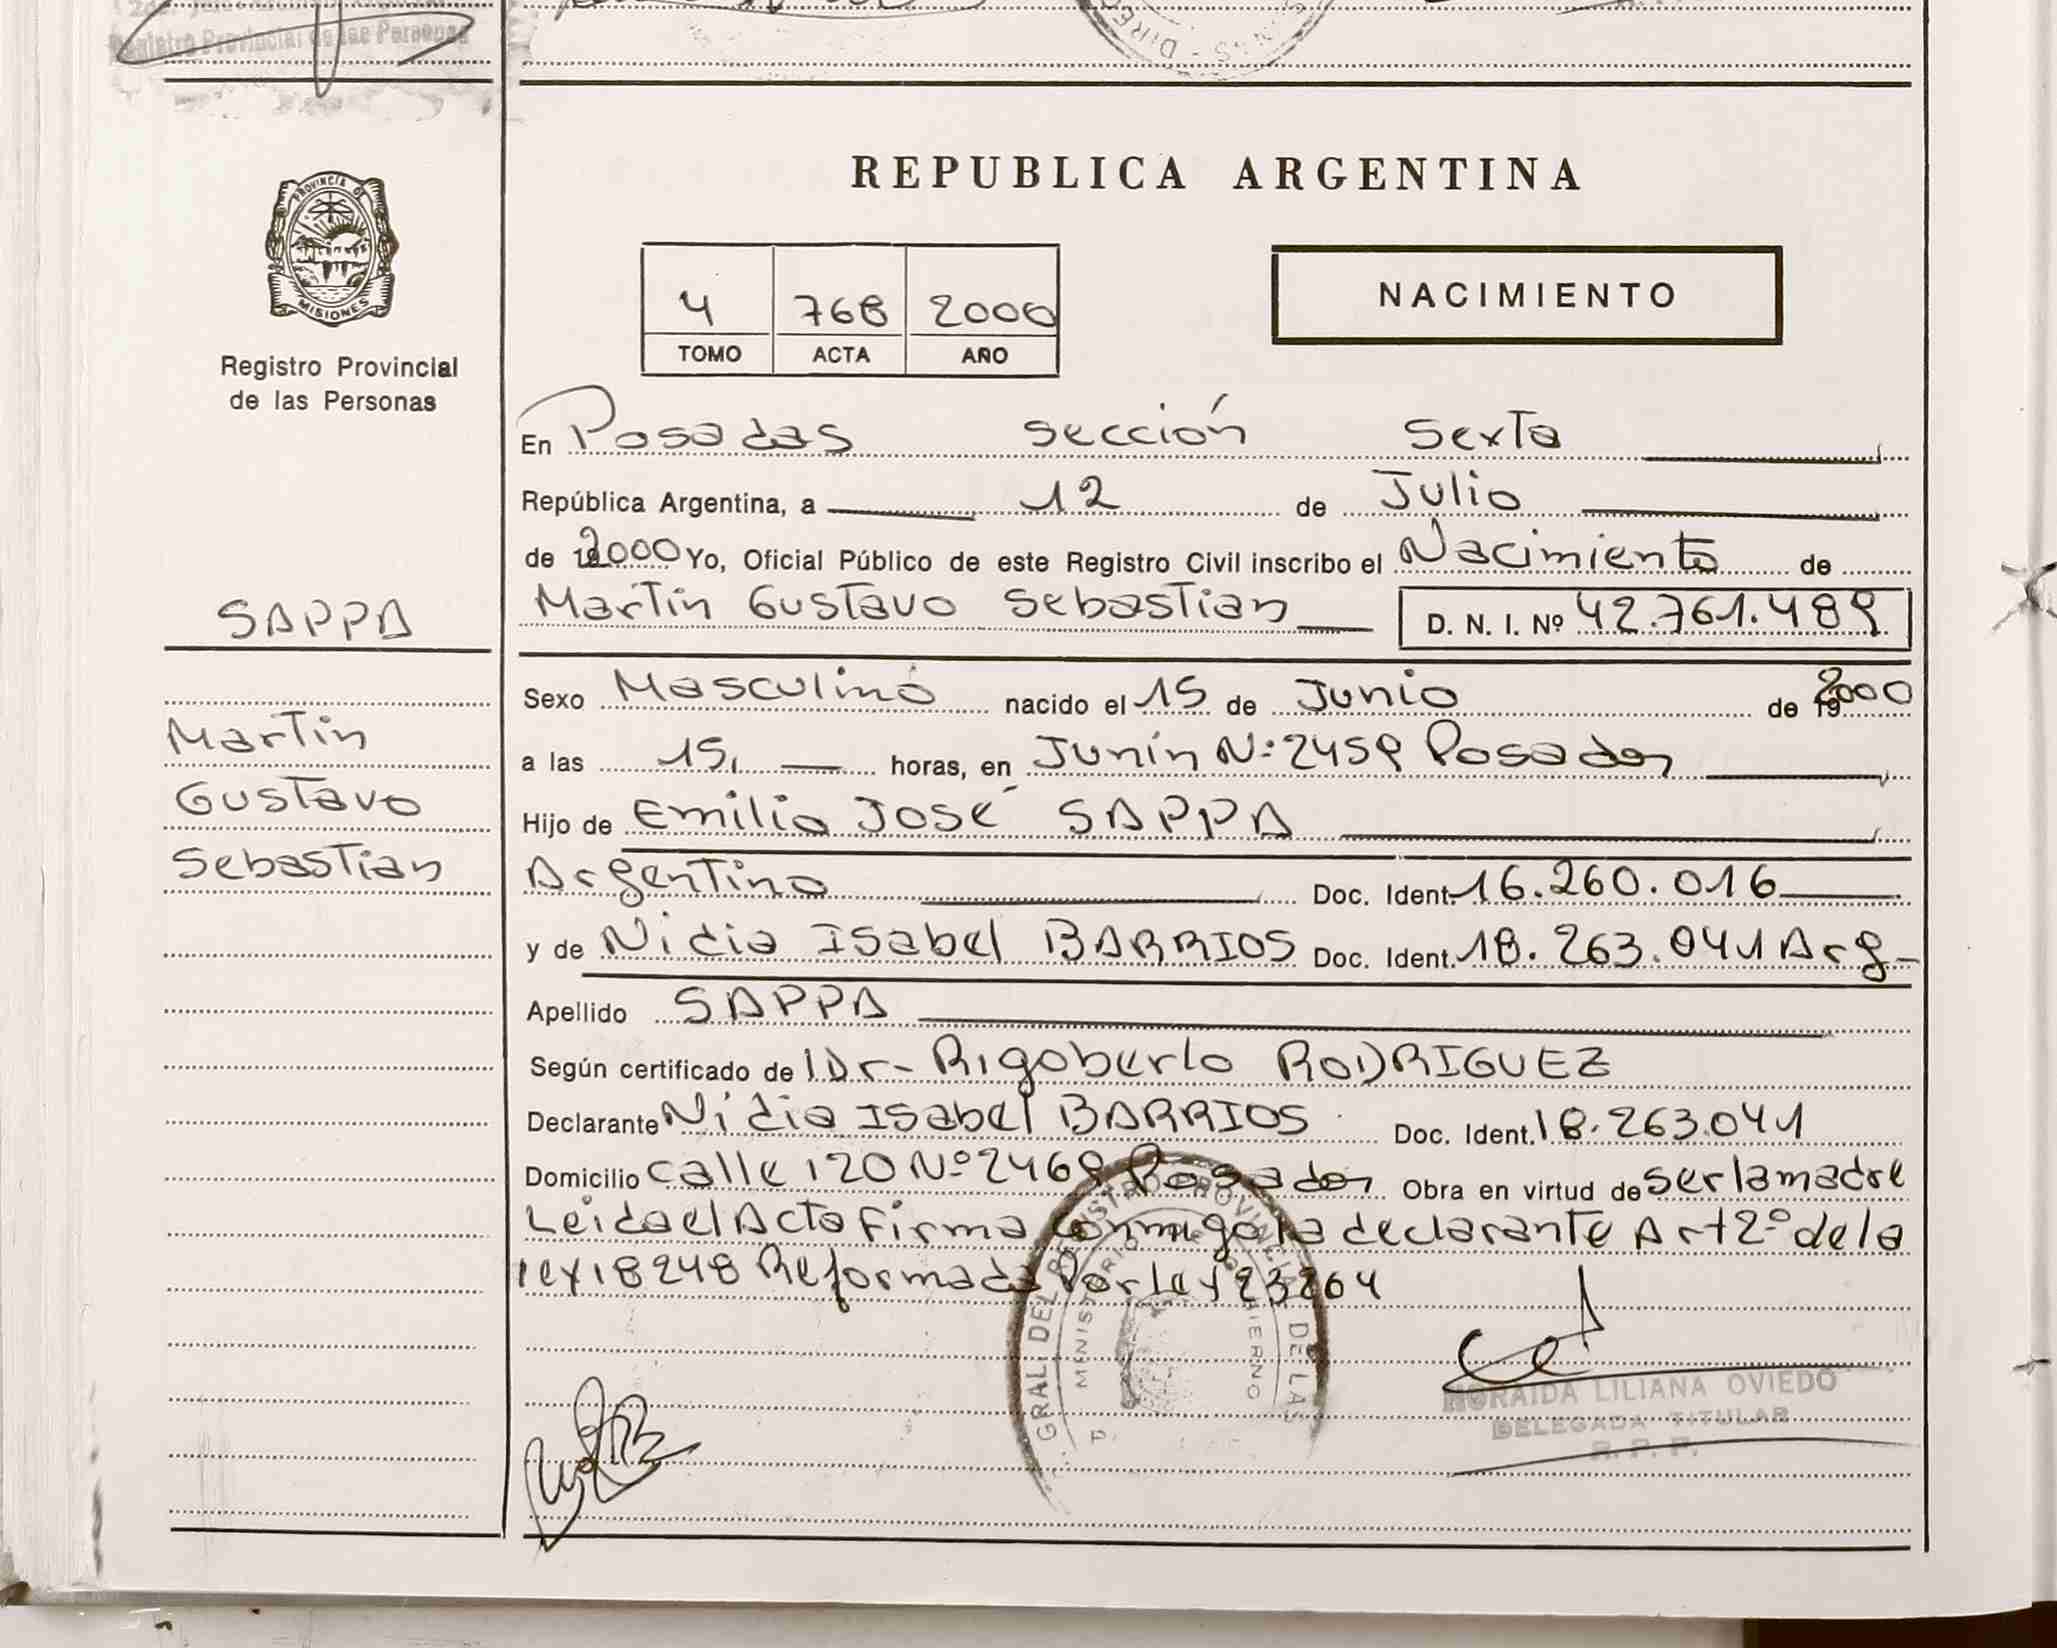 Registro Provincial de las Personas
DIREC
PROVINCIA DE
MISIONES
Registro Provincial
de las Personas
REPUBLICA ARGENTINA
4 768 2000
TOMO ACTA AÑO
NACIMIENTO
En Posadas sección Sexta
República Argentina, a 12 de Julio
de 2000 Yo, Oficial Público de este Registro Civil inscribo el Nacimiento de
SAPPA
Martin Gustavo Sebastian D. N. I. Nº 42.761.489
Sexo Masculino nacido el 15 de Junio de 2000
Martin
a las 15, horas, en Junín Nº 2459 Posadas
Gustavo
Hijo de Emilio José SAPPA
Sebastian
Argentino Doc. Ident. 16.260.016
y de Nidia Isabel BARRIOS Doc. Ident. 18.263.041 Arg-
Apellido SAPPA
Según certificado de Dr- Rigoberto RODRIGUEZ
Declarante Nidia Isabel BARRIOS Doc. Ident. 18.263.041
Domicilio calle 120 Nº 2469 Posadas Obra en virtud de ser la madre
Leida el Acta Firma conmigo la declarante Art 2º de la
ley 18248 Reformada Por Ley 23264
GRAL DEL REGISTRO PROVINCIAL DE LAS
MINISTERIO DE GOBIERNO
NORAIDA LILIANA OVIEDO
DELEGADA TITULAR
R. P. P.